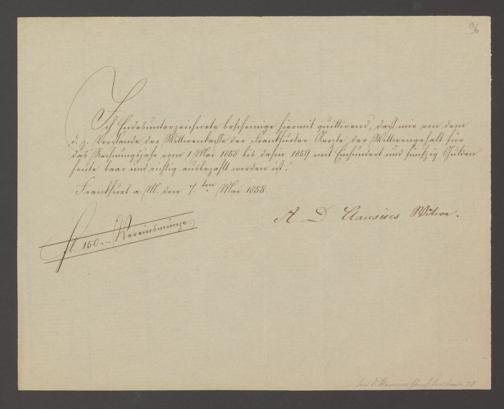 96
Ich Endesunterzeichnete bescheinige hiermit quittirend, daß mir von dem
d. z. Vorstande der Wittwenkasse der Frankfurter Aerzte, der Wittwengehalt für
das Rechnungsjahr vom 1 Mai 1858 bis dahin 1859 mit Einhundert und fünfzig Gulden
heute baar und richtig ausbezahlt worden ist.
Frankfurt a/M. den 7.ten Mai 1858.
A D Clausius Witwe.
fl 150 Vereinsmünze